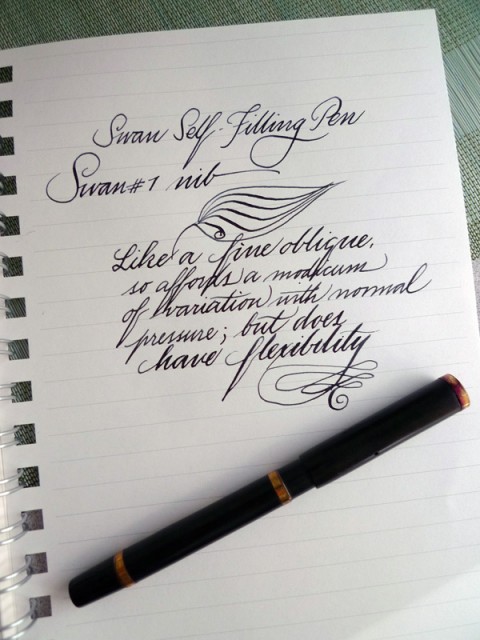 Swan Self-Filling Pen
Swan #1 nib
Like a fine oblique,
so affords a modicum
of variation with normal
pressure; but does
have flexibility